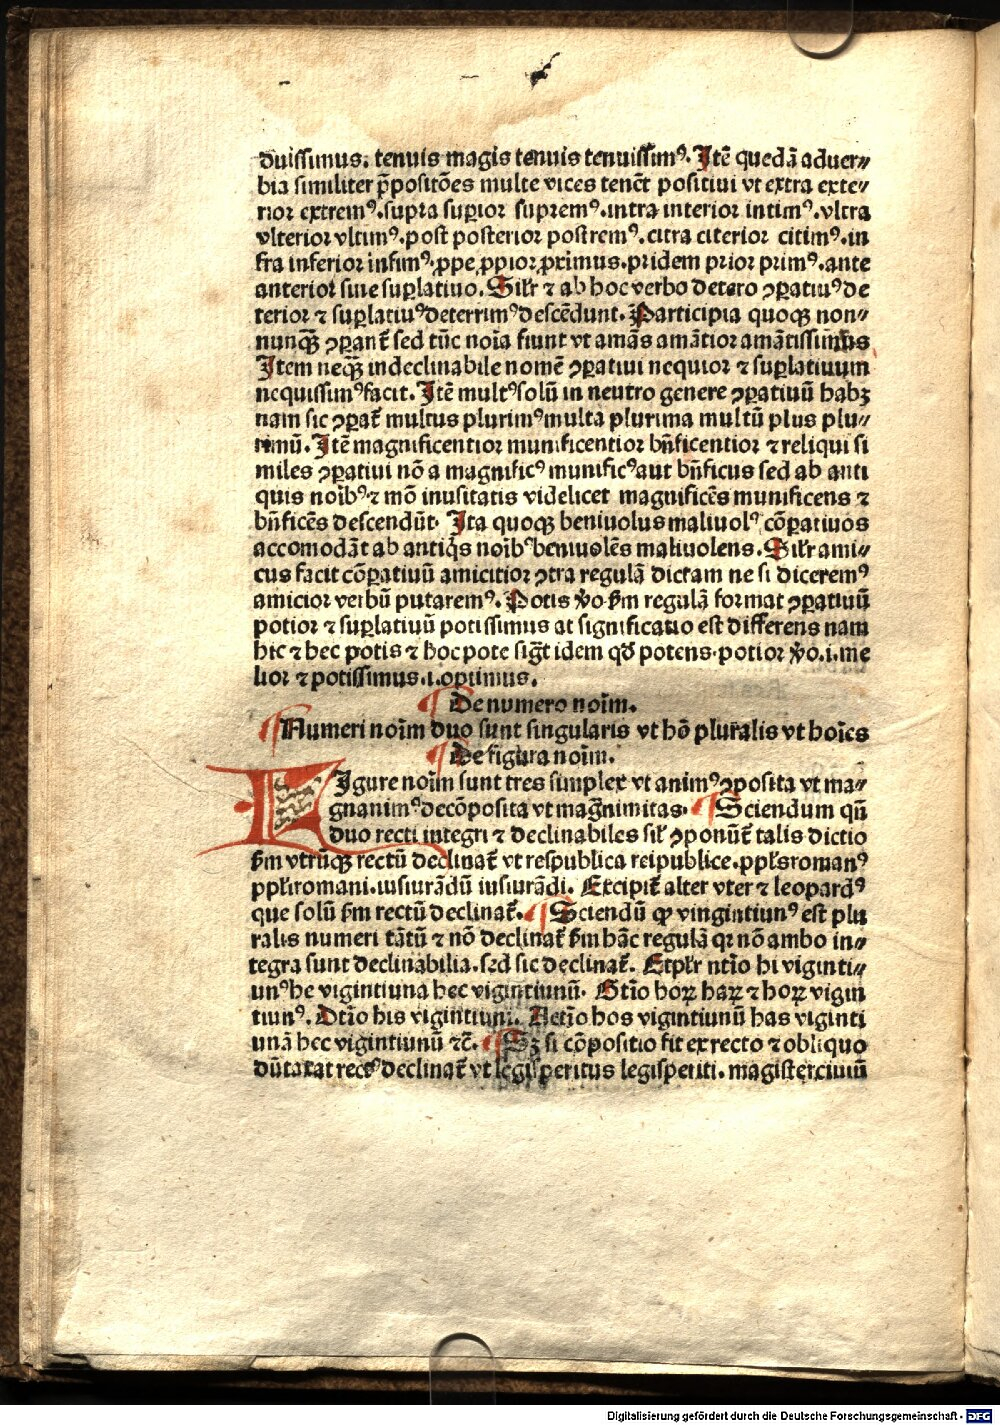 duissimus. tenuis magis tenuis tenuissimꝰ. Itē quedā aduer⸗
bia similiter p̄positōes multe vices tenēt positiui vt extra exte⸗
rior extremꝰ. supra suꝑior supremꝰ. intra interior intimꝰ. vltra
vlterior vltimꝰ. post posterior postremꝰ. citra citerior citimꝰ. in
fra inferior infimꝰ. ꝓpe ꝓpior ꝓximus. pridem prior primꝰ. ante
anterior sine suꝑlatiuo. Silr̄ ⁊ ab hoc verbo detero ꝯꝑatiuꝰ de
terior ⁊ suꝑlatiuꝰ deterrimꝰ descēdunt. Participia quoqꝫ non⸗
nunqꝫ ꝯꝑant̄ sed tūc noīa fiunt vt amās amātior amātissimus
Item neqꝫ indeclinabile nomē ꝯꝑatiui nequior ⁊ suꝑlatiuum
nequissimꝰ facit. Itē multꝰ solū in neutro genere ꝯꝑatiuū habꝫ
nam sic ꝯꝑat̄ multus plurimꝰ multa plurima multū plus plu⸗
rimū. Itē magnificentior munificentior bn̄ficentior ⁊ reliqui si
miles ꝯꝑatiui nō a magnificꝰ munificꝰ aut bn̄ficus sed ab anti
quis noībꝰ ⁊ mō inusitatis videlicet magnificēs munificens ⁊
bn̄ficēs descendūt. Ita quoqꝫ beniuolus maliuolꝰ cōꝑatiuos
accomodāt ab antiq̇s noībꝰ beniuolēs maliuolens. Silr̄ ami⸗
cus facit cōꝑatiuū amicitior ꝯtra regulā dictam ne si diceremꝰ
amicior verbū putaremꝰ. Potis v̆o ẜm regulā format ꝯꝑatiuū
potior ⁊ suꝑlatiuū potissimus at significatio est differens nam
hic ⁊ hec potis ⁊ hoc pote sig̅t idem qđ potens. potior v̆o .i. me
lior ⁊ potissimus .i. optimus.
¶ De numero noīm.
¶ Numeri noīm duo sunt singularis vt hō pluralis vt hoīes
¶ De figura noīm.
FIgure noīm sunt tres simplex vt animꝰ ꝯposita vt ma⸗
gnanimꝰ decōposita vt magn̄imitas. ¶ Sciendum qn̄
duo recti integri ⁊ declinabiles sil̄ ꝯponūt̄ talis dictio
ẜm vtrūqꝫ rectū declinat̄ vt respublica reipublice. ppl̄s romanꝰ
ppl̄i romani. iusiurādū iusiurādi. Excipit̄ alter vter ⁊ leopardꝰ
que solū ẜm rectū declinat̄. ¶ Sciendū ꝙ vingintiunꝰ est plu
ralis numeri tātū ⁊ nō declinat̄ ẜm hāc regulā qꝛ nō ambo in⸗
tegra sunt declinabilia. sꝫd sic declinat̄. Et plr̄ ntīo hi viginti⸗
unꝰ he vigintiuna hec vigintiunū. Gtīo hoꝝ haꝝ ⁊ hoꝝ vigin
tiunꝰ. Dtīo his vigintiuni. Actīo hos vigintiunū has viginti
unā hec vigintiunū ⁊c̄. ¶ Sꝫ si cōpositio fit ex recto ⁊ obliquo
dūtaxat rectꝰ declinat̄ vt legisperitus legisperiti. magisterciuiū
Digitalisierung gefördert durch die Deutsche Forschungsgemeinschaft - DFG